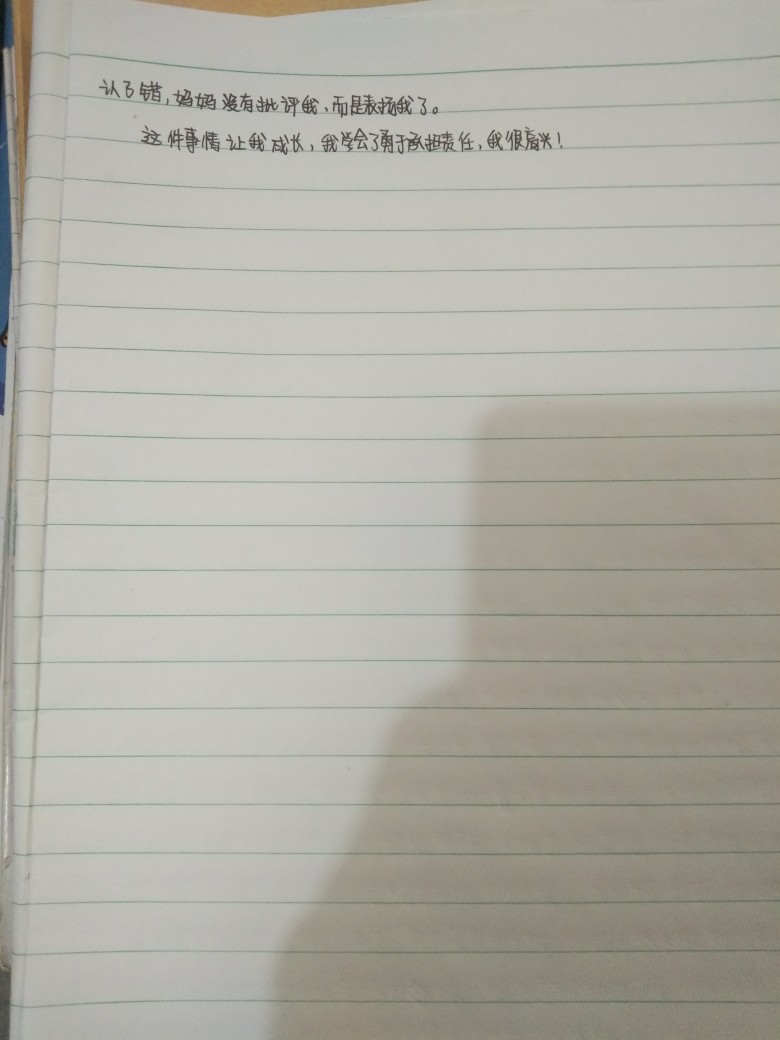 认了错,妈妈没有批评我,而是表扬我了。
这件事情让我成长,我学会了勇于承担责任,我很高兴!